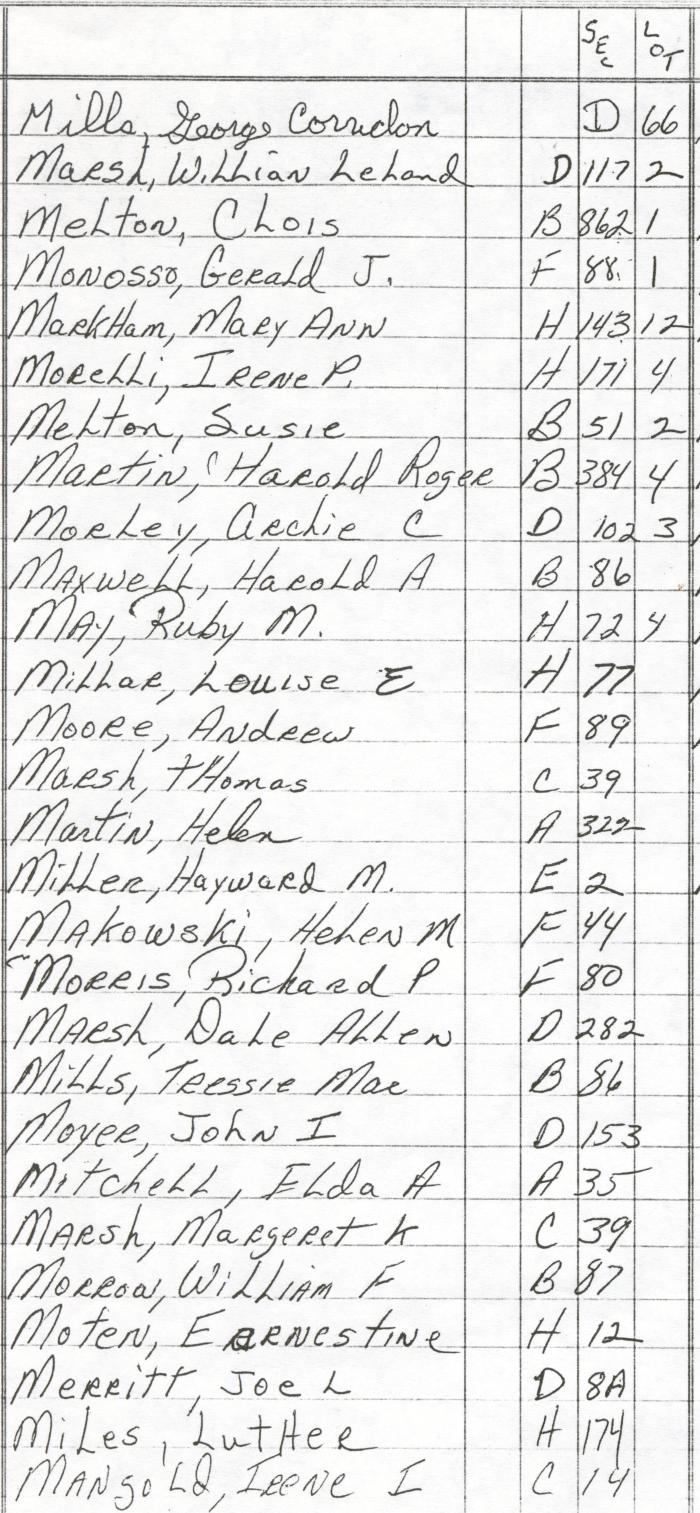 SEC LOT
Mills, George Corridon D 66
Marsh, Willian Leland D 117 2
Melton, CLois B 862 1
Monosso, Gerald J. F 88 1
MarkHam, Mary Ann H 143 12
Morelli, Irene P. H 171 4
Melton, Susie B 51 2
Martin, Harold Roger B 384 4
Morley, Archie C D 102 3
Maxwell, Harold A B 86
May, Ruby M. H 72 4
Millar, Louise E H 77
Moore, Andrew F 89
Marsh, THomas C 39
Martin, Helen A 322
Miller, Hayward M. E 2
Makowski, Helen M F 44
Morris, Richard P F 80
Marsh, Dale Allen D 282
Mills, Tressie Mae B 86
Moyer, John I D 153
Mitchell, Elda A A 35
Marsh, Margeret K C 39
Morrow, William F B 87
Moten, Earnestine H 12
Merritt, Joe L D 8A
Miles, LutHer H 174
Mangold, Irene I C 14